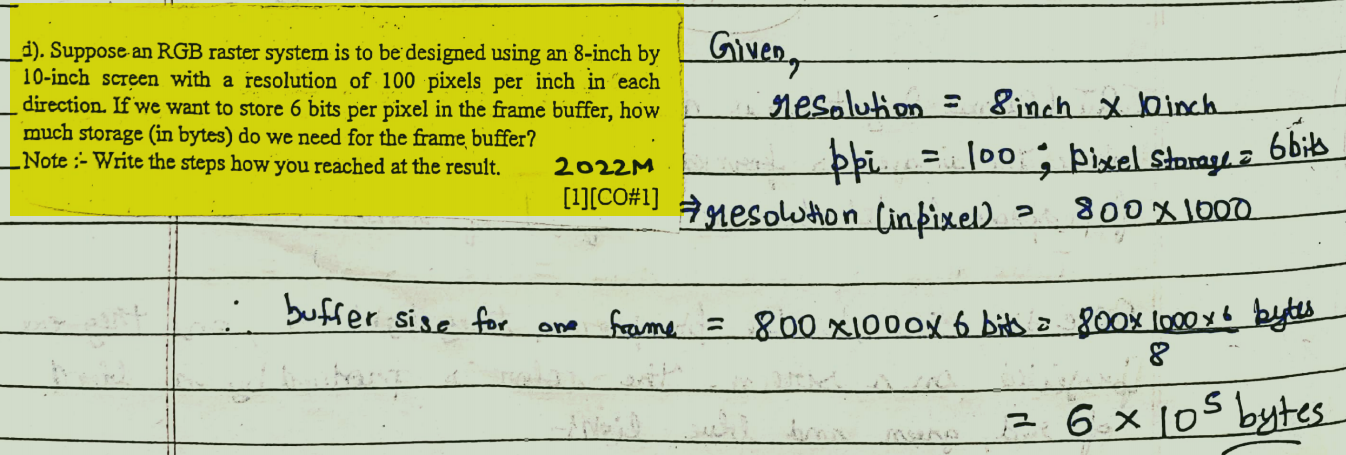 d). Suppose an RGB raster system is to be designed using an 8-inch by
10-inch screen with a resolution of 100 pixels per inch in each
direction. If we want to store 6 bits per pixel in the frame buffer, how
much storage (in bytes) do we need for the frame buffer?
Note :- Write the steps how you reached at the result. 2022M
[1][CO#1]
Given,
resolution = 8inch x 10inch
ppi = 100 ; pixel storage = 6bits
⇒ resolution (in pixel) = 800 x 1000
∴ buffer size for one frame = 800 x 1000 x 6 bits = 800 x 1000 x 6 / 8 bytes
= 6 x 10⁵ bytes